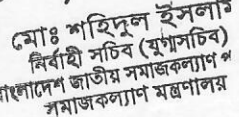 মোঃ শহিদুল ইসলাম
নির্বাহী সচিব (যুগ্মসচিব)
বাংলাদেশ জাতীয় সমাজকল্যাণ প
সমাজকল্যাণ মন্ত্রণালয়